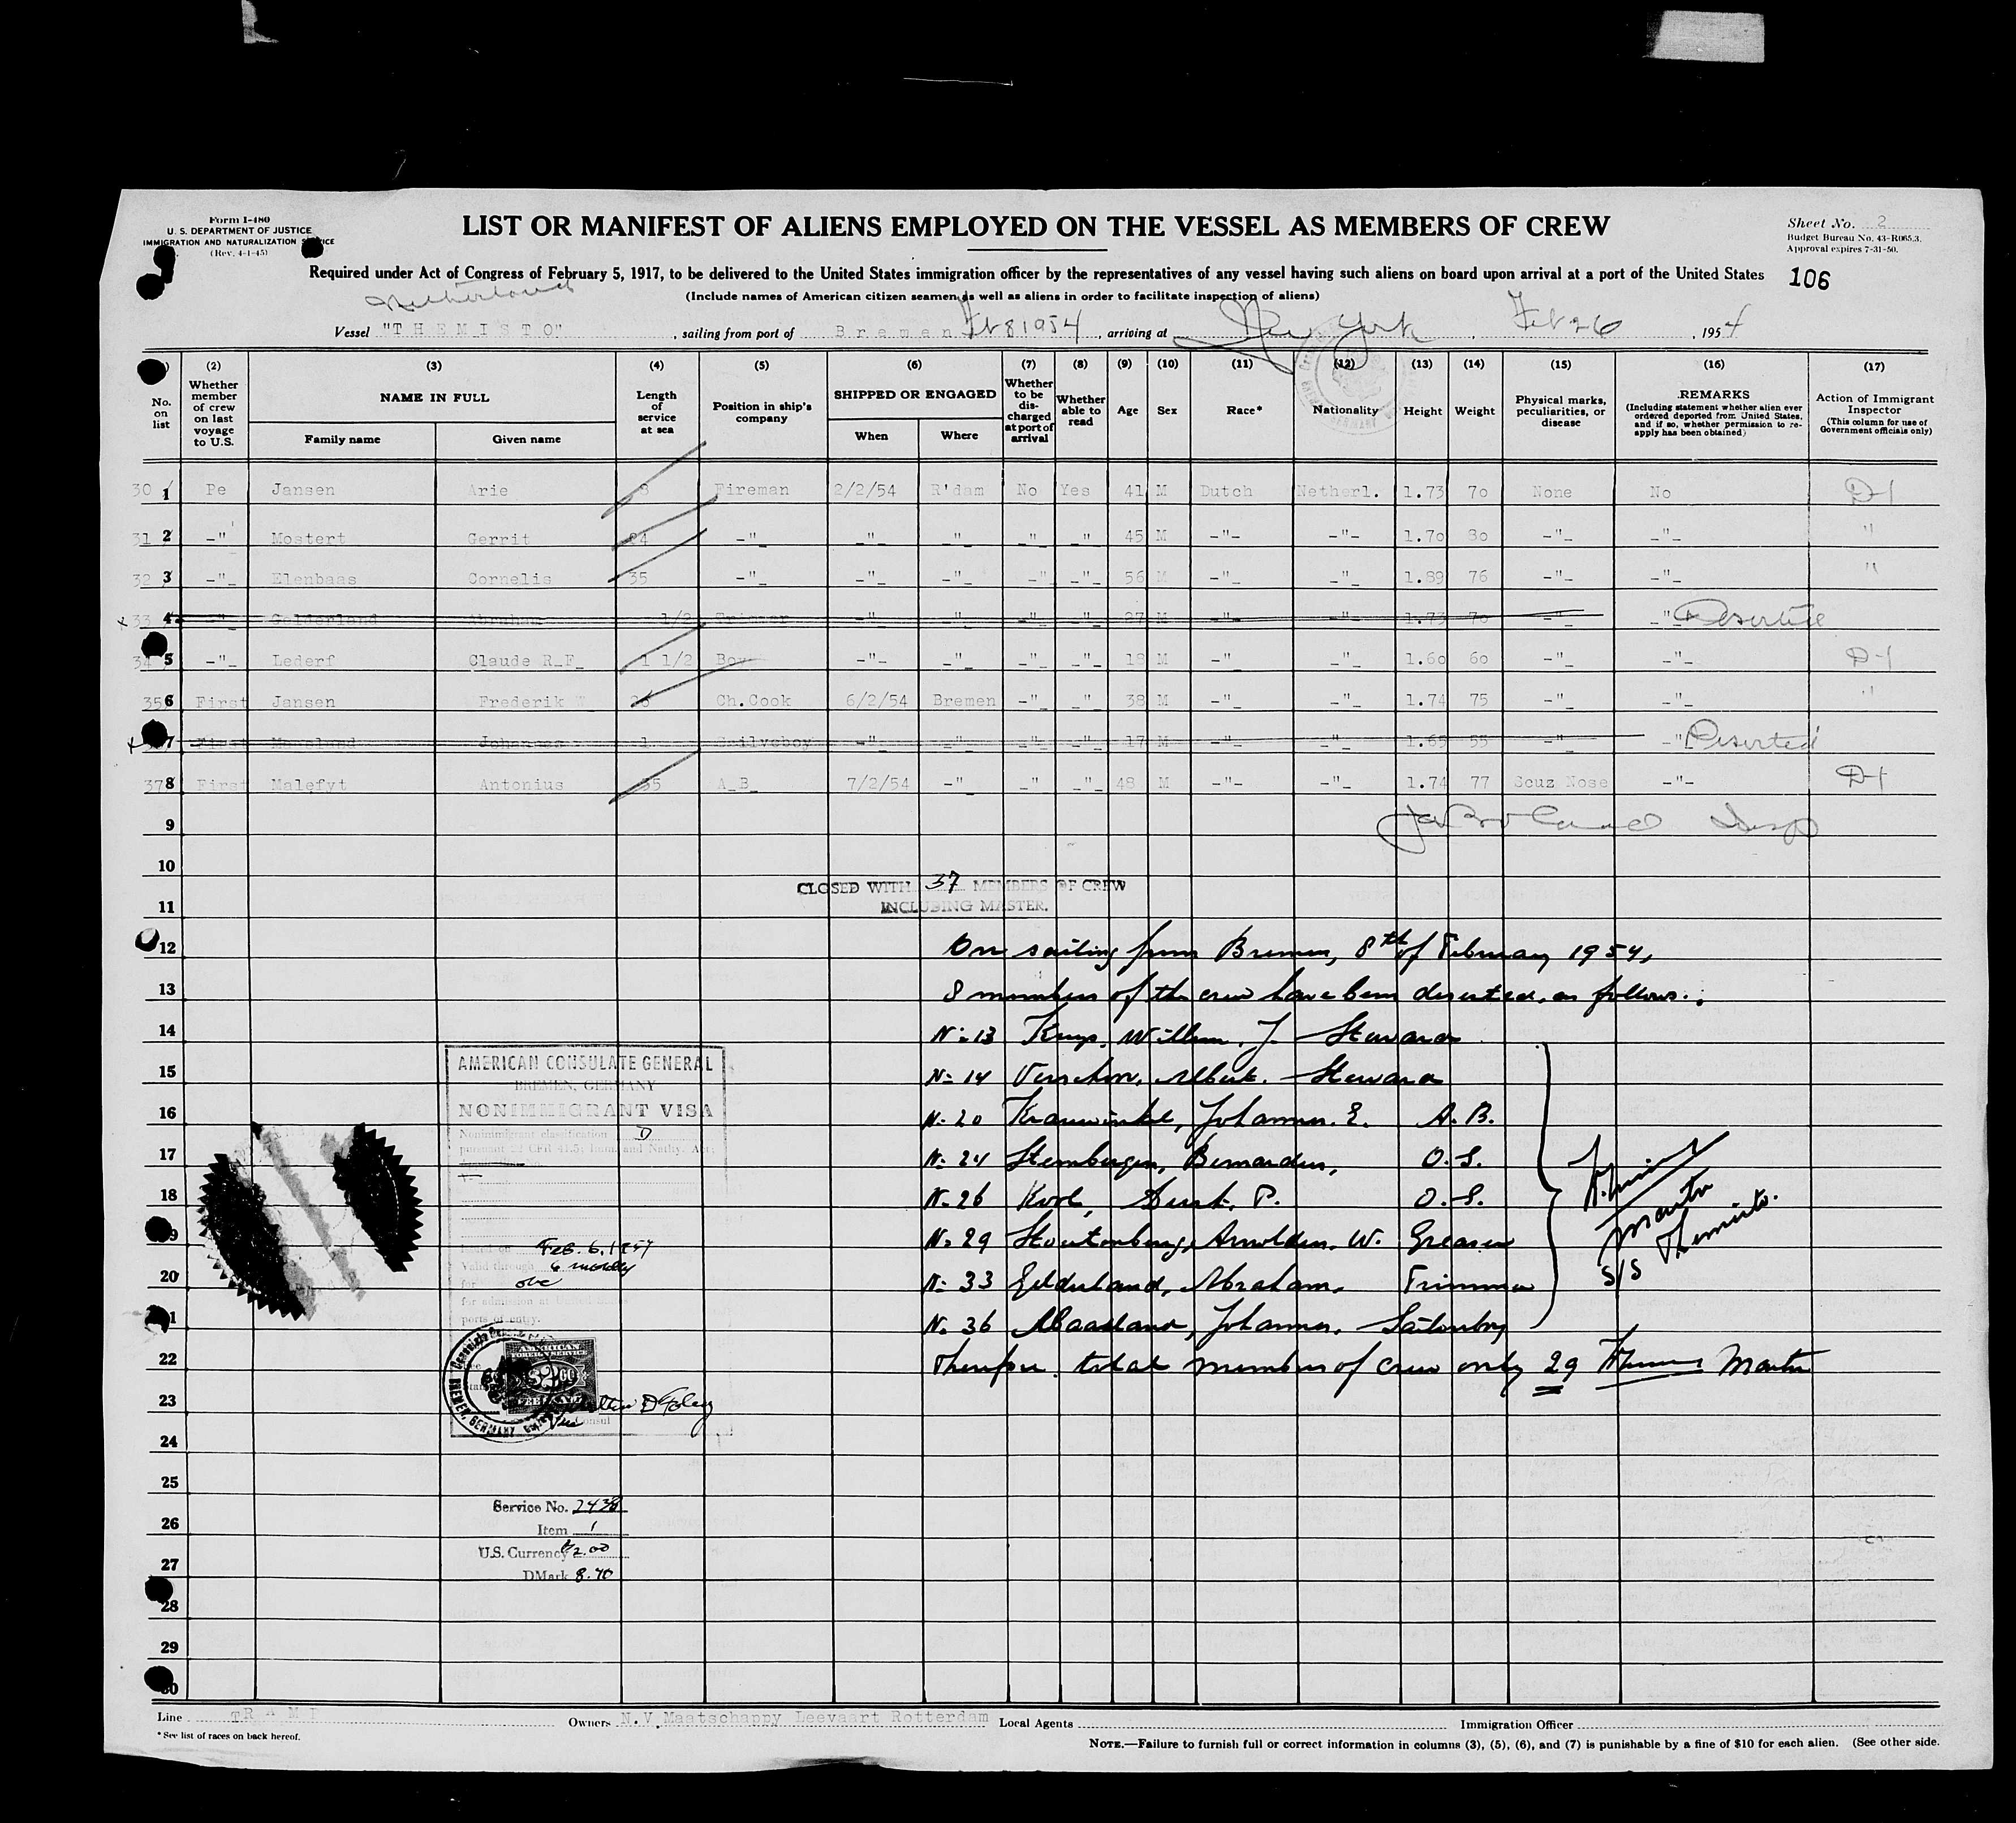 Form I-480
U. S. DEPARTMENT OF JUSTICE
IMMIGRATION AND NATURALIZATION SERVICE
(Rev. 4-1-45)
LIST OR MANIFEST OF ALIENS EMPLOYED ON THE VESSEL AS MEMBERS OF CREW
Sheet No. 2
Budget Bureau No. 43-R065.3.
Approval expires 7-31-50.
Required under Act of Congress of February 5, 1917, to be delivered to the United States immigration officer by the representatives of any vessel having such aliens on board upon arrival at a port of the United States
106
(Include names of American citizen seamen as well as aliens in order to facilitate inspection of aliens)
Netherland
Vessel "THEMISTO", sailing from port of Bremen Feb 8 1954, arriving at New York, Feb 26, 1954
(2) (3) (4) (5) (6) (7) (8) (9) (10) (11) (12) (13) (14) (15) (16) (17)
No. on list
Whether member of crew on last voyage to U.S.
NAME IN FULL
Family name
Given name
Length of service at sea
Position in ship's company
SHIPPED OR ENGAGED
When
Where
Whether to be discharged at port of arrival
Whether able to read
Age
Sex
Race*
Nationality
Height
Weight
Physical marks, peculiarities, or disease
REMARKS
(Including statement whether alien ever ordered deported from United States, and if so, whether permission to re-apply has been obtained)
Action of Immigrant Inspector
(This column for use of Government officials only)
30 1 Pe Jansen Arie 8 Fireman 2/2/54 R'dam No Yes 41 M Dutch Netherl. 1.73 70 None No D-1
31 2 -"- Mostert Gerrit 24 -"- -"- -"- -"- -"- 45 M -"- -"- 1.70 80 -"- -"- "
32 3 -"- Elenbaas Cornelis 35 -"- -"- -"- -"- -"- 56 M -"- -"- 1.89 76 -"- -"- "
x 33 4 -"- Gelderland Abraham 1/2 Trimmer -"- -"- -"- -"- 27 M -"- -"- 1.73 70 -"- -"- Deserted
34 5 -"- Lederf Claude R.F. 1 1/2 Boy -"- -"- -"- -"- 18 M -"- -"- 1.60 60 -"- -"- D-1
35 6 First Jansen Frederik W Ch.Cook 6/2/54 Bremen -"- -"- 38 M -"- -"- 1.74 75 -"- -"- "
x 7 First Maasland Johannes 1 -"- -"- -"- -"- 17 M -"- -"- 1.65 55 -"- -"- Deserted
37 8 First Malefyt Antonius 35 A.B. 7/2/54 -"- -"- -"- 48 M -"- -"- 1.74 77 Scuz Nose -"- D-1
9 Insp
10
CLOSED WITH 37 MEMBERS OF CREW
11
INCLUDING MASTER.
12 On sailing from Bremen, 8th of February 1954,
13 8 members of the crew have been deserted, as follows:
14 No 13 Willem J. Steward
15 No 14 Albert. Steward
16 No 20 Johannes. E. A.B.
17 No 24 Bernardus, O.S.
18 No 26 Kool, P. O.S.
No 29 Stoutenburg, Arnoldus. W. Greaser
20 No 33 Gelderland, Abraham. Trimmer
No 36 Maasland, Johannes.
Master
S/S Themisto.
22 Therefore total members of crew only 29 Master
23
24
25
26
27
28
29
30
AMERICAN CONSULATE GENERAL
BREMEN, GERMANY
NONIMMIGRANT VISA
Nonimmigrant classification D
Feb. 6, 1954
Valid through 6 months
for one
for admission at United States
ports of entry.
AMERICAN
FOREIGN SERVICE
BREMEN, GERMANY
Vice Consul
Service No. 2438
Item 1
U.S. Currency $2.00
DMark 8.40
Line TRAMP
Owners N.V. Maatschappy Leevaart Rotterdam
Local Agents
Immigration Officer
*See list of races on back hereof.
NOTE.—Failure to furnish full or correct information in columns (3), (5), (6), and (7) is punishable by a fine of $10 for each alien. (See other side.